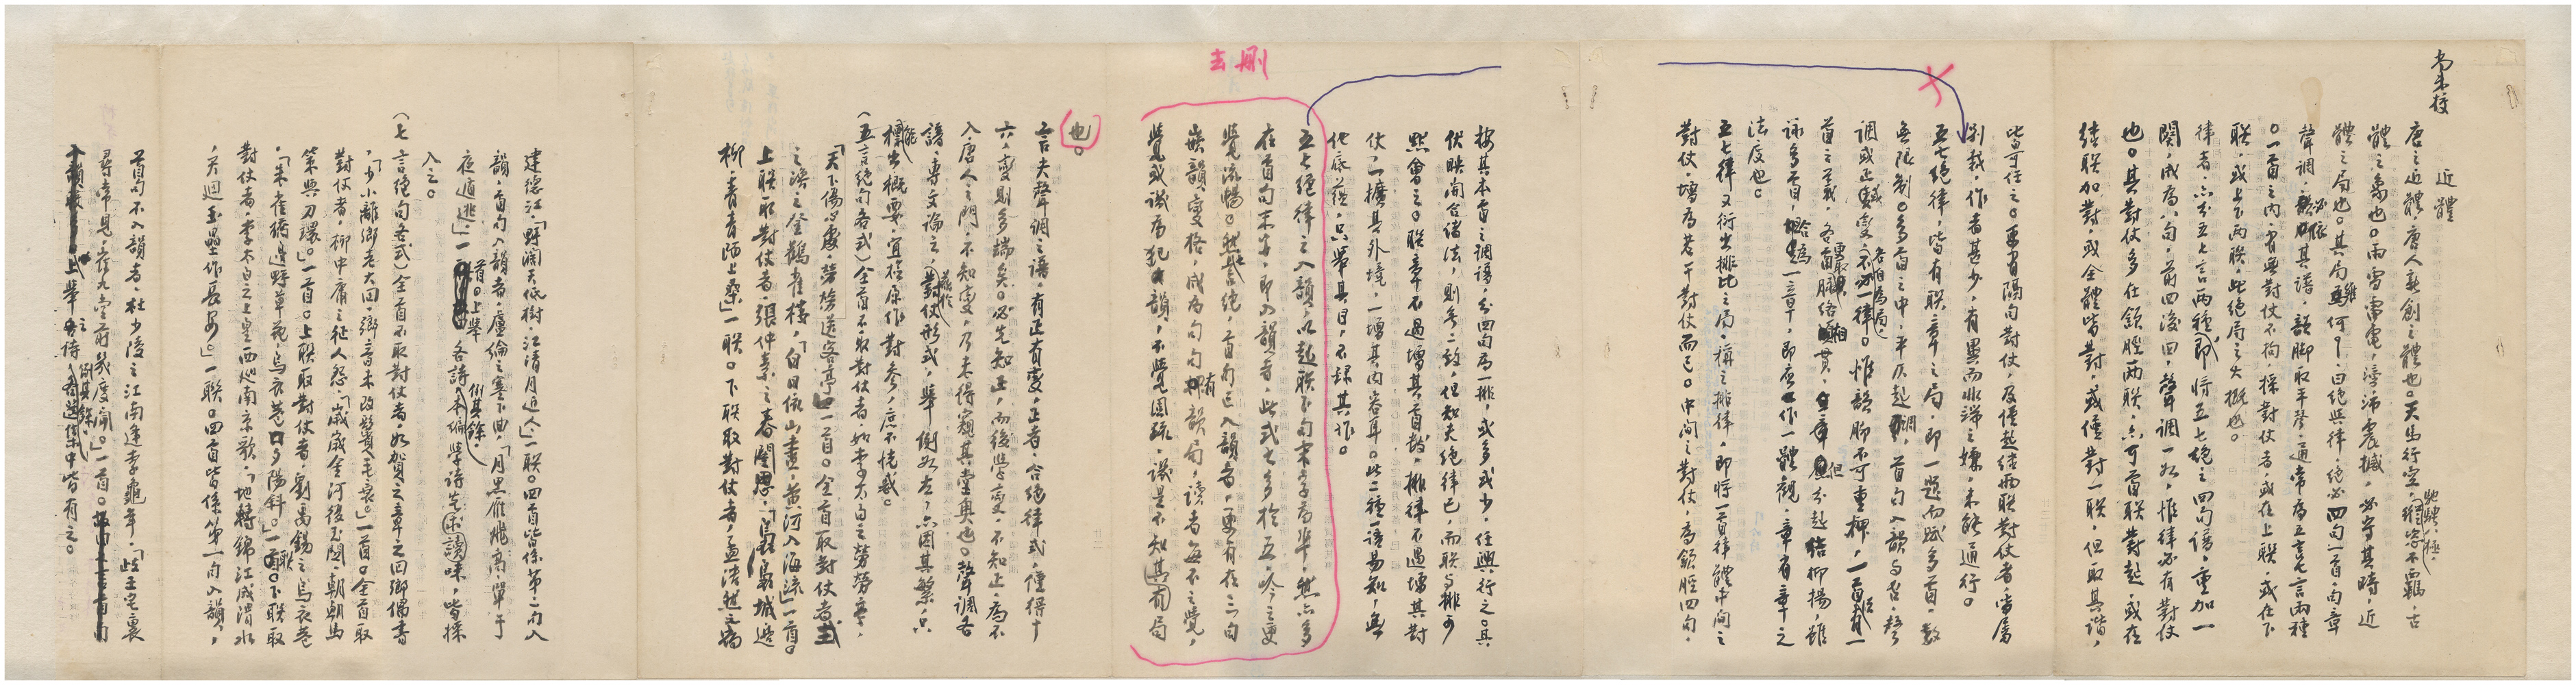 尚未校
近體
唐之近體，唐人新創之體也。天馬行空，馳騁極，不羈，古
體之象也。雨雷電，滂沛震撼，必守其時，近
體之局也。其局雖何，曰絕與律，絕必四句一首，句章
聲調，必依其譜，韻腳取平聲，通常為五言七言兩種
。一首之內，有無對仗不拘，採對仗者，或在上聯，或在下
聯，或上下兩聯，此絕局之大概也。
律者，亦分五七言兩種，即將五七絕之四句譜，重加一
闋，成為八句，前四後四，聲調一如，惟律必有對仗
也。其對仗多在頷脛兩聯，亦可首聯對起，或在
結聯加對，或全體皆對，或僅對一聯，但取其諧，
皆可任之。更有隔句對仗，及僅起結兩聯對仗者，當屬
別裁，作者甚少，有異而水滯之嫌，未能通行。
五七絕律，皆有聯章之局，即一題而賦多首，數
無限制。多首之中，平仄起調，首句入韻與否，聲
調或正或變，各自為局，不必一律。惟韻腳不可重押，一首有一
首之義，各首脈絡相貫，但分起結抑揚，雖
詠多首，合為一章，即應作一體觀，章有章之
法度也。
五七律又衍出排比之局，稱之排律，即將一首律體中間之
對仗，增為若干對仗而已。中間之對仗，為頷脛四句，
按其本首之調譜，分四句為一排，或多或少，任興行之。其
伏映開合諸法，則無二致，但知夫絕律已，而聯與排可
默會之。聯章不過增其首數，排律不過增其對
仗，一擴其外境，一增其內容耳。此二種一語易知，無
他底蘊，只舉其目，不錄其作。
刪去
五七絕律之入韻，以起聯下句末字為準，然亦多
在首句末字，即入韻者，此式七多於五，吟之更
覺流暢。然七言絕，首句已入韻者，更有在三句
嵌韻，變格，成為句句有押韻局，讀者每不之覺，
覺或譏為犯韻，不覺固疏，譏是不知其有局
也。
言夫聲調之譜，有正有變，正者，合絕律式，僅得十
六，變則多端矣。必先知正，而後學變，不知正，為不
入唐人之門，不知變，乃未得窺其堂奧也。聲調各
譜，專文論之，對仗形式，舉例如左，亦因其繁，只
能標出概要，宜檢原作對參，庶不恍惑。
（五言絕句各式）全首不取對仗者，如李太白之勞勞亭，
「天下傷心處，勞勞送客亭」一首。全首取對仗者，王
之渙之登鸛雀樓，「白日依山盡，黃河入海流」一首。
上聯取對仗者，張仲素之春閨思，「裊裊城邊
柳，青青陌上桑」一聯。下聯取對仗者，孟浩然之宿
建德江，「野闊天低樹，江清月近人」一聯。四首皆係第二句入
韻，首句入韻者，盧綸之塞下曲，「月黑雁飛高，單于
夜遁逃」，一首。上舉各詩，例其餘，本編學詩先讀味，皆採
入之。
（七言絕句各式）全首不取對仗者，如賀之章之回鄉偶書
，「少小離鄉老大回，鄉音未改鬢毛衰。」一首。全首取
對仗者，柳中庸之征人怨，「歲歲金河復玉關，朝朝馬
策與刀環」。一首。上聯取對仗者，劉禹錫之烏衣巷
，「朱雀橋邊野草花，烏衣巷口夕陽斜。」一聯。下聯取
對仗者，李太白之上皇西巡南京歌，「地轉錦江成渭水
，天迴玉壘作長安」。一聯。四首皆係第一句入韻，
首句不入韻者，杜少陵之江南逢李龜年，「岐王宅裏
尋常見，崔九堂前幾度聞。」一首。
上舉之詩，例其餘，集中皆有之。